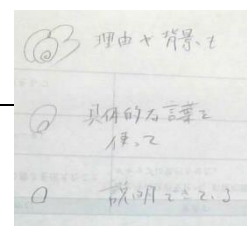 理由や背景も
具体的な言葉を
使って
説明できている